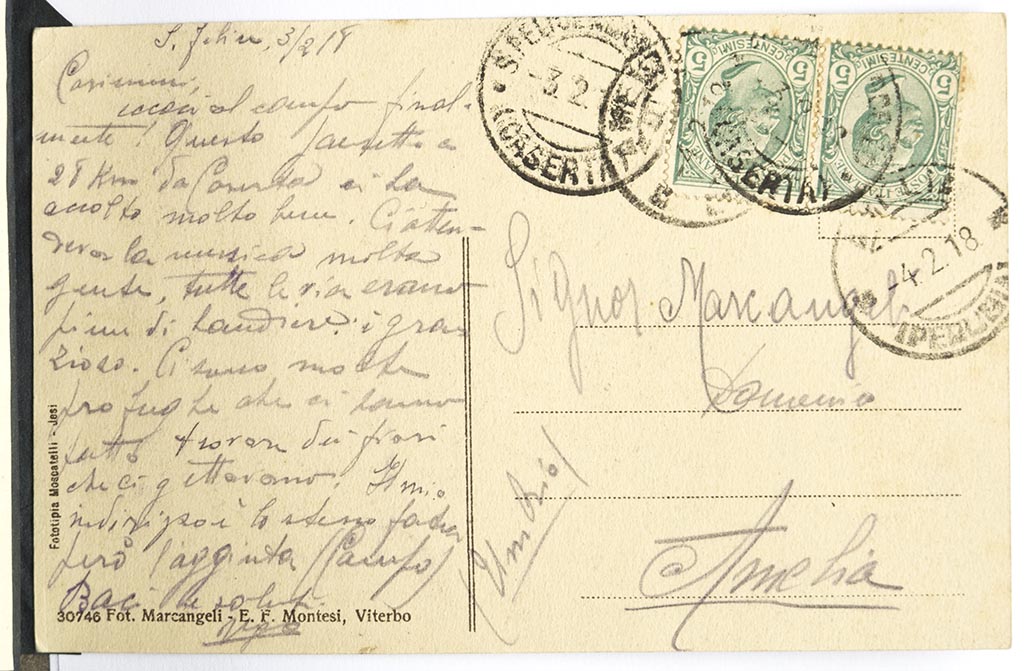 S. Felice, 3/2/18
Carissimi,
eccoci al campo final-
mente! Questo paesetto a
28 Km da Caserta ci ha
accolto molto bene. Ci atten-
deva la musica molta
gente, tutte le vie erano
piene di bandiere: è gra-
zioso. Ci sono molte
profughe che ci hanno
fatto trovare dei fiori
che ci gettavano. Il mio
indirizzo è lo stesso
però l'aggiunta (Campo)
Baci
30746 Fot. Marcangeli - E. F. Montesi, Viterbo
Fototipia Moscatelli - Jesi
(CASERTA)
-3.2
5 CENTESIMI 5
5 CENTESIMI 5
(CASERTA)
-4.2.18
(PERUGIA)
Signor Marcangeli
Domenico
(Umbria)
Amelia